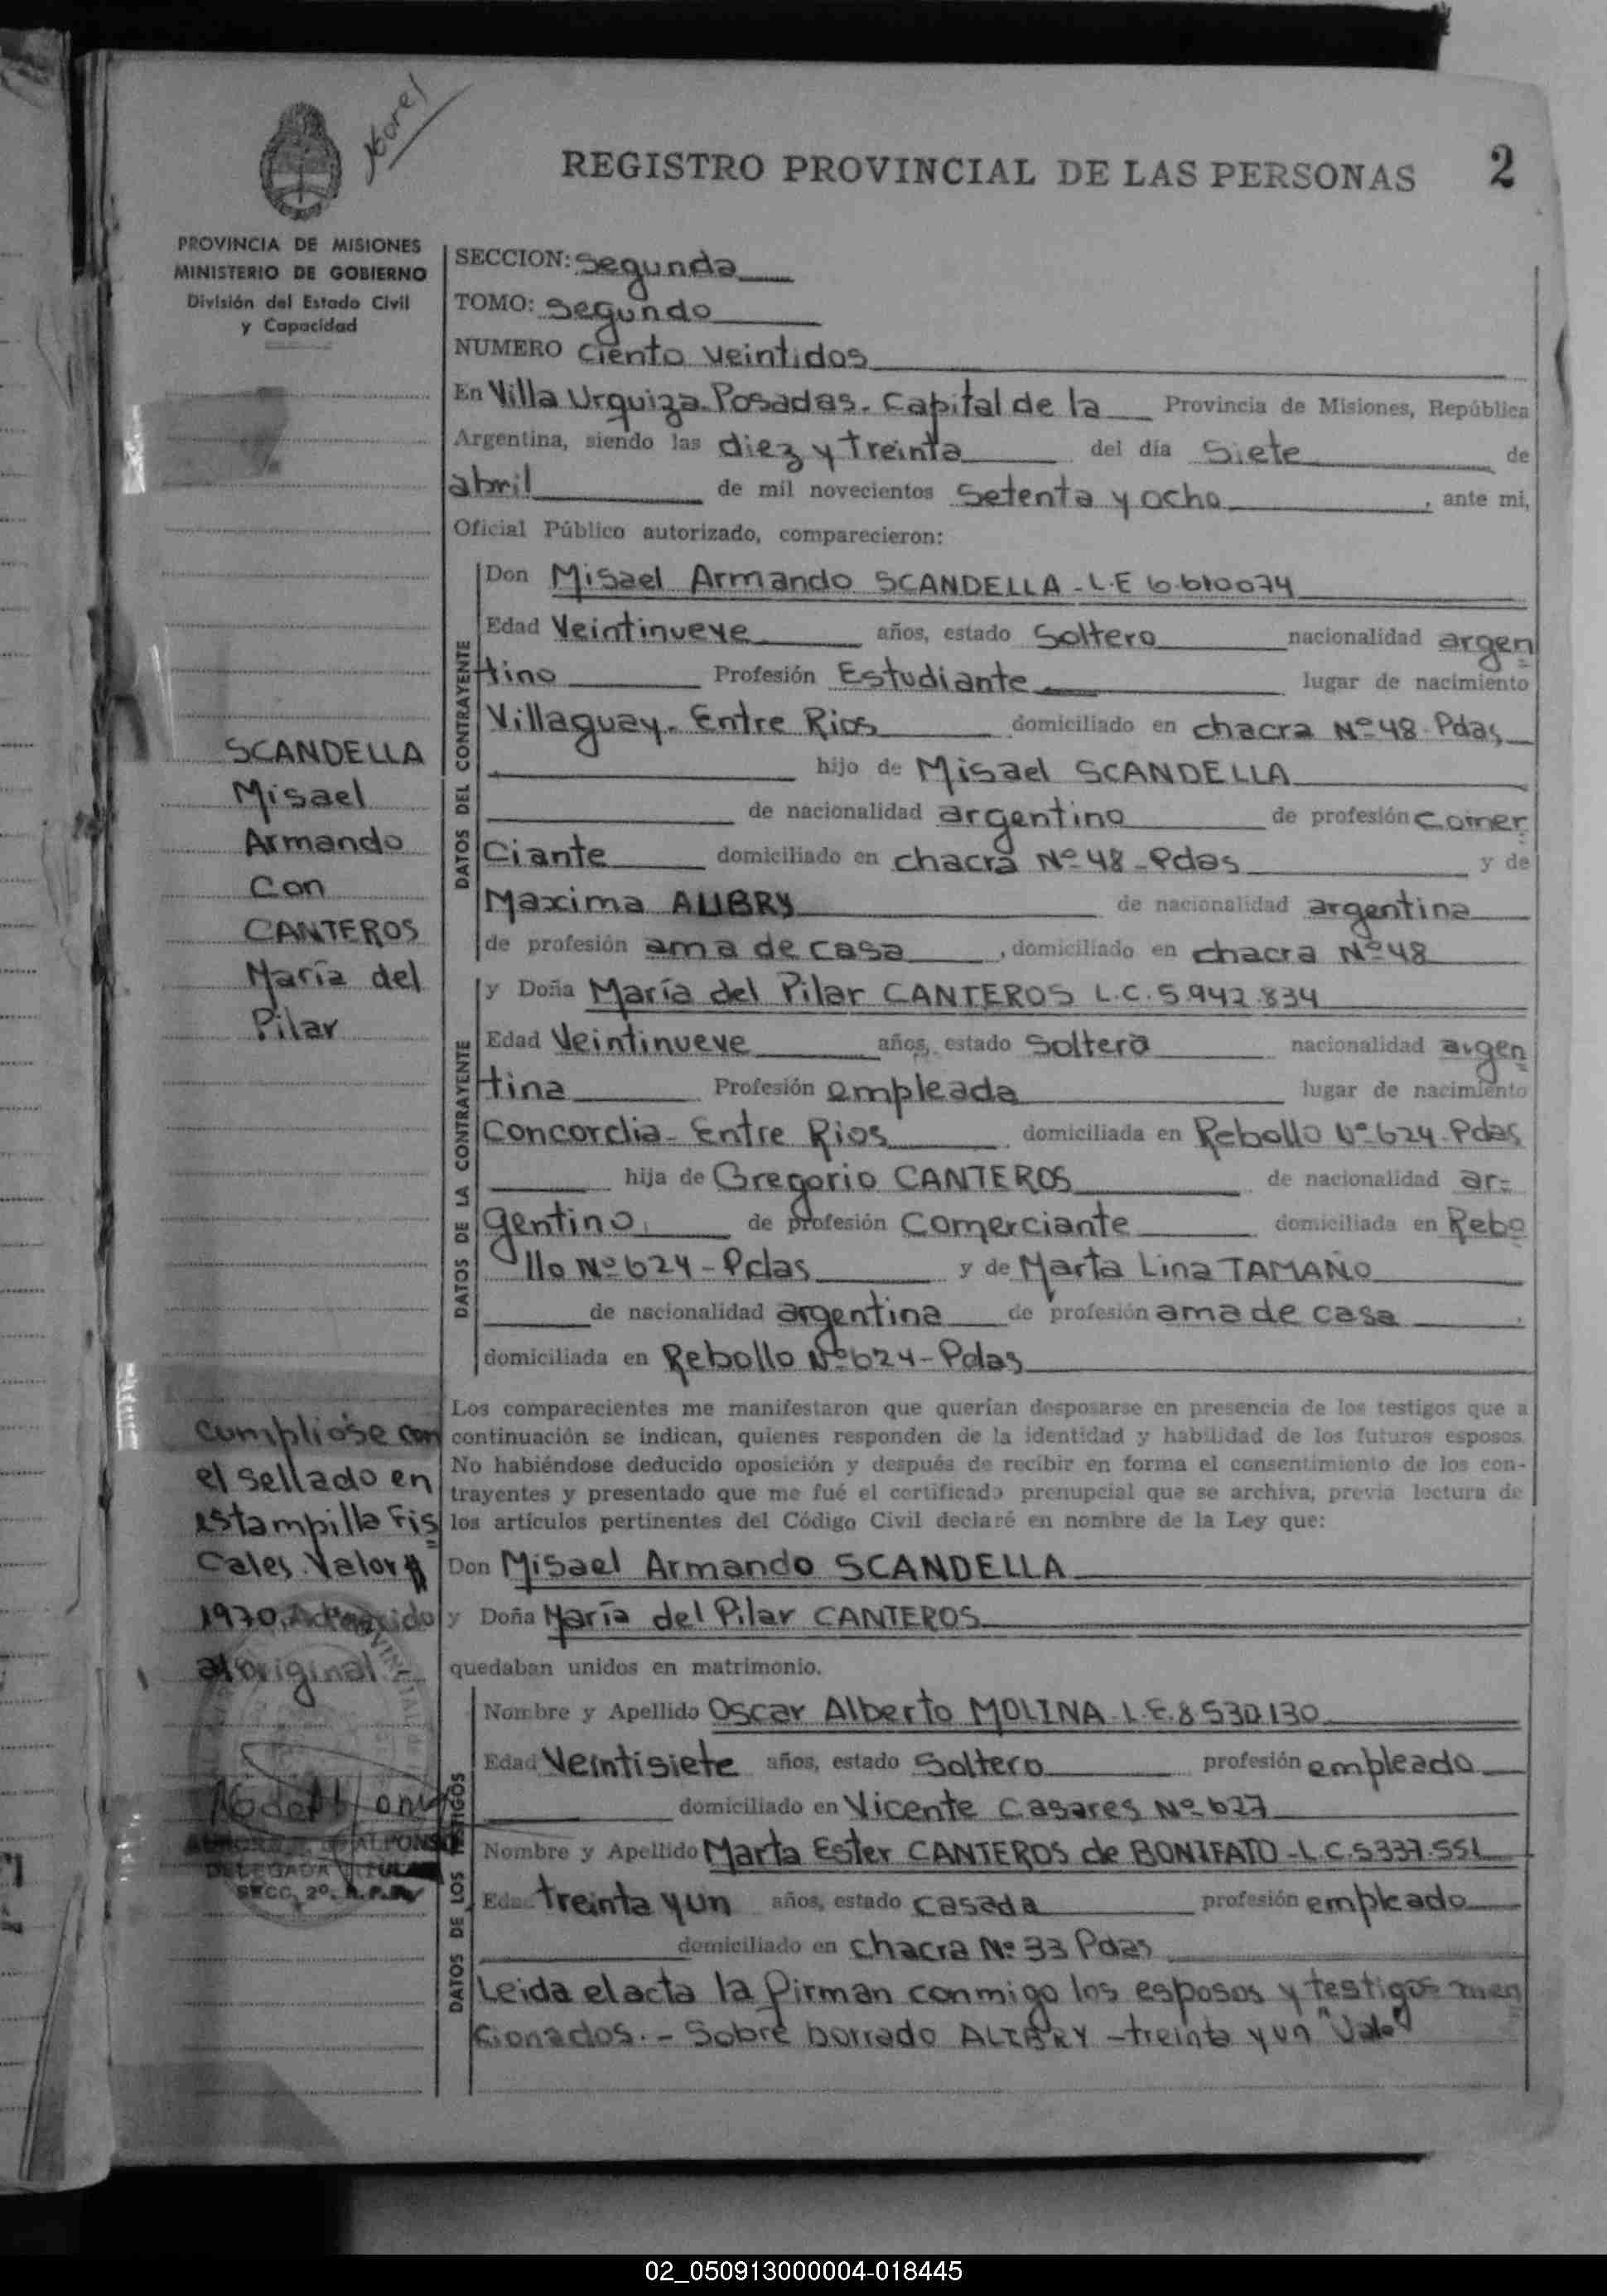 REGISTRO PROVINCIAL DE LAS PERSONAS 2
PROVINCIA DE MISIONES
MINISTERIO DE GOBIERNO
División del Estado Civil
y Capacidad
SCANDELLA
Misael
Armando
Con
CANTEROS
María del
Pilar
Cumpliose con
el sellado en
estampilla Fis
cales. Valor $
1970. Adherido
al original
DELEGADA TITULAR
SECC. 2º. R.P.P.
SECCION: Segunda
TOMO: Segundo
NUMERO Ciento veintidos
En Villa Urquiza. Posadas. Capital de la Provincia de Misiones, República
Argentina, siendo las diez y treinta del día Siete de
abril de mil novecientos Setenta y ocho, ante mi,
Oficial Público autorizado, comparecieron:
DATOS DEL CONTRAYENTE
Don Misael Armando SCANDELLA - L.E 6.610074
Edad Veintinueve años, estado Soltero nacionalidad argen
tino Profesión Estudiante lugar de nacimiento
Villaguay. Entre Rios domiciliado en chacra Nº 48 - Pdas
hijo de Misael SCANDELLA
de nacionalidad argentino de profesión comer
ciante domiciliado en chacra Nº 48 - Pdas y de
Maxima AUBRY de nacionalidad argentina
de profesión ama de casa, domiciliado en chacra Nº 48
DATOS DE LA CONTRAYENTE
y Doña María del Pilar CANTEROS L.C. 5.942.834
Edad Veintinueve años, estado Soltera nacionalidad argen
tina Profesión empleada lugar de nacimiento
Concordia - Entre Rios domiciliada en Rebollo Nº 624 - Pdas
hija de Gregorio CANTEROS de nacionalidad ar=
gentino, de profesión Comerciante domiciliada en Rebo
llo Nº 624 - Pdas y de Marta Lina TAMAÑO
de nacionalidad argentina de profesión ama de casa,
domiciliada en Rebollo Nº 624 - Pdas
Los comparecientes me manifestaron que querían desposarse en presencia de los testigos que a
continuación se indican, quienes responden de la identidad y habilidad de los futuros esposos.
No habiéndose deducido oposición y después de recibir en forma el consentimiento de los con-
trayentes y presentado que me fué el certificado prenupcial que se archiva, previa lectura de
los artículos pertinentes del Código Civil declaré en nombre de la Ley que:
Don Misael Armando SCANDELLA
y Doña María del Pilar CANTEROS
quedaban unidos en matrimonio.
DATOS DE LOS TESTIGOS
Nombre y Apellido Oscar Alberto MOLINA - L.E. 8.530.130
Edad Veintisiete años, estado Soltero profesión empleado
domiciliado en Vicente Casares Nº 627
Nombre y Apellido Marta Ester CANTEROS de BONIFATO - L.C. 5.337.551
Edad treinta y un años, estado casada profesión empleado
domiciliado en chacra Nº 33 Pdas
Leida el acta la firman conmigo los esposos y testigos men
cionados. - Sobre borrado AUBRY - treinta y un "Vale"
02_050913000004-018445